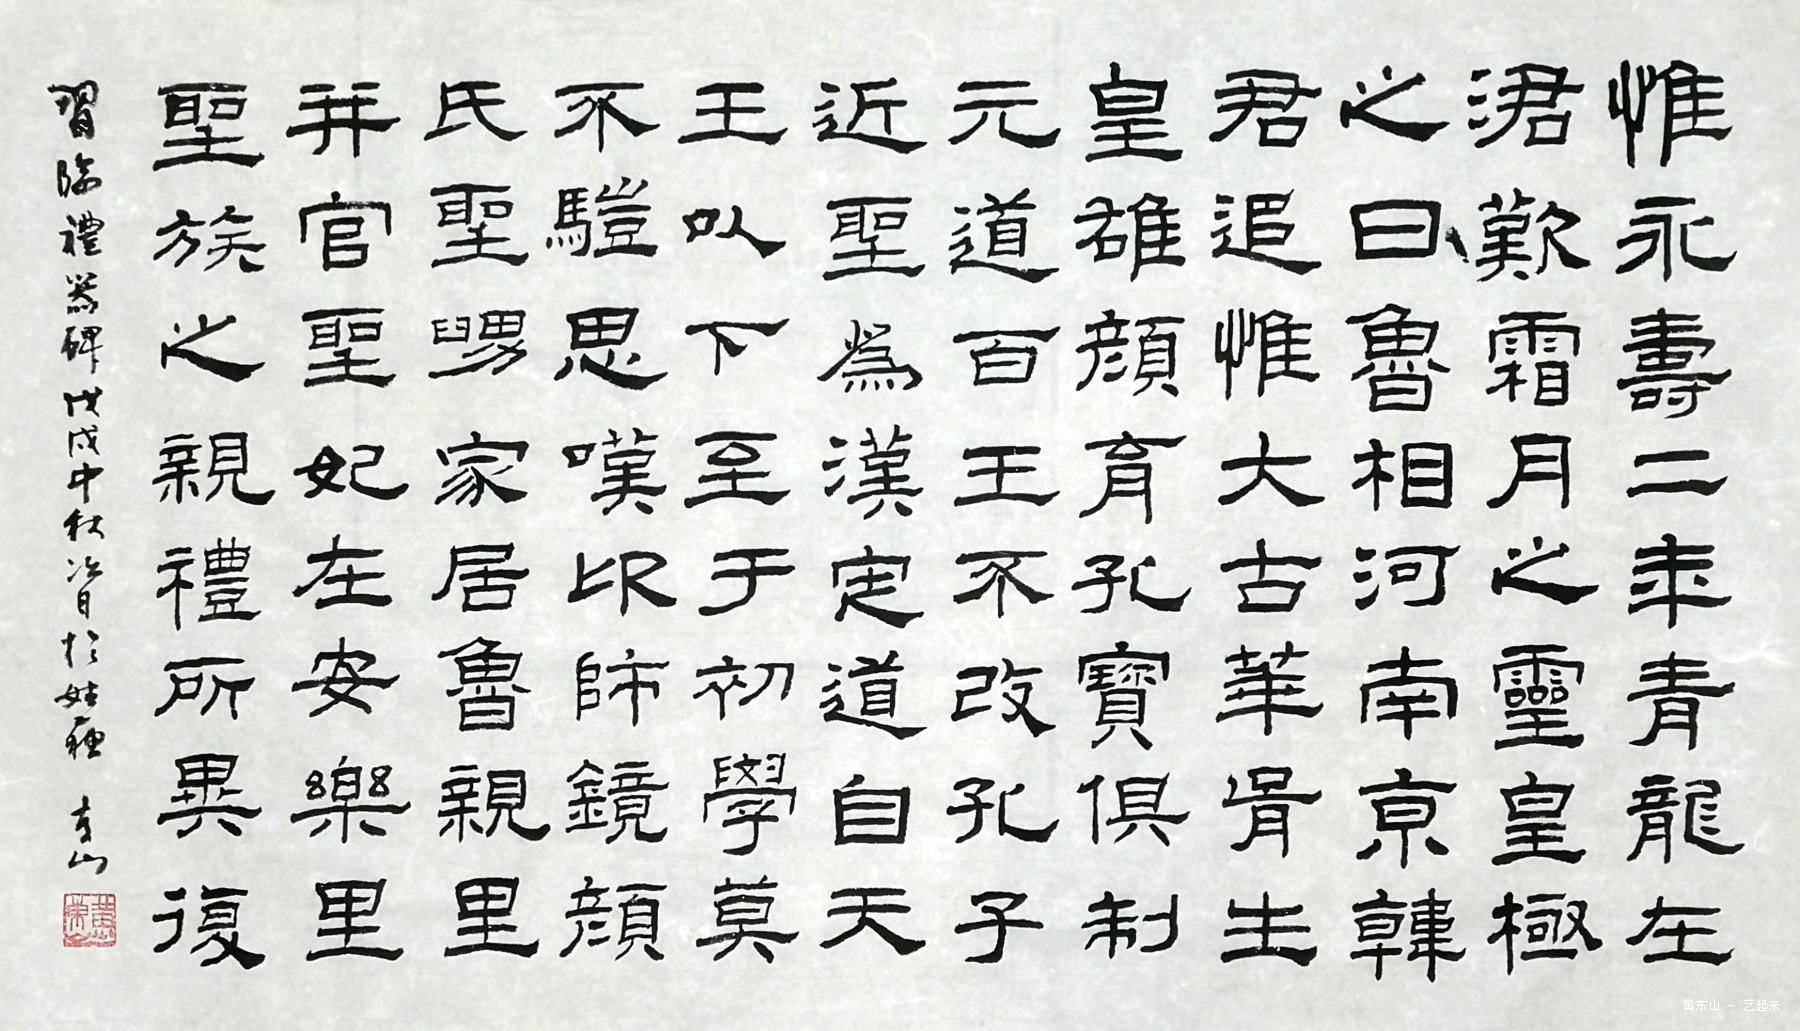 惟永壽二年青龍在
涒歎霜月之靈皇極
之日魯相河南京韓
君追惟大古華胥生
皇雄顏育孔寶俱制
元道百王不改孔子
近聖為漢定道自天
王以下至于初學莫
不驥思嘆卬師鏡顏
氏聖舅家居魯親里
并官聖妃在安樂里
聖族之親禮所異復
習臨禮器碑戊戌中秋次日於姑蘇 東山
© 黄东山 - 艺起来